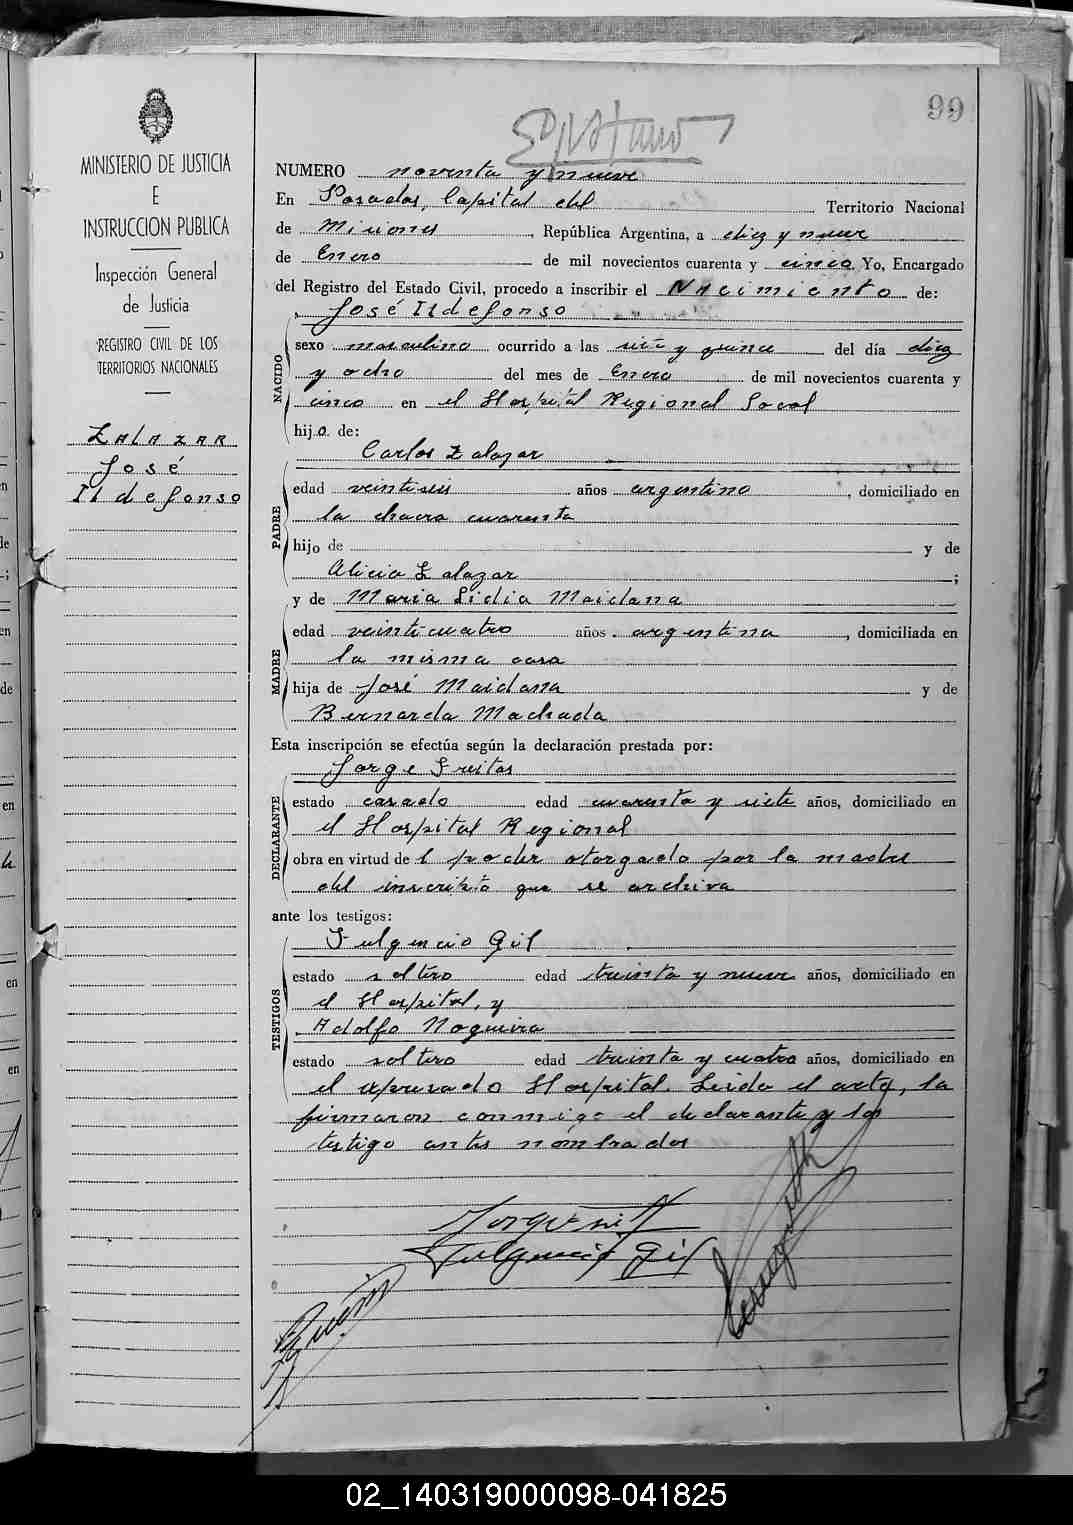 99
NUMERO noventa y nueve
En Posadas, Capital del Territorio Nacional
de Misiones, República Argentina, a diez y nueve
de Enero de mil novecientos cuarenta y cinco Yo, Encargado
del Registro del Estado Civil, procedo a inscribir el Nacimiento de:
José Ildefonso
NACIDO
sexo masculino ocurrido a las siete y quince del día diez
y ocho del mes de Enero de mil novecientos cuarenta y
cinco en el Hospital Regional Local
hijo de:
Carlos Zalazar
PADRE
edad veintiseis años argentino, domiciliado en
la chacra cuarenta
hijo de y de
Alicia Zalazar;
y de Maria Lidia Maidana
MADRE
edad veinticuatro años argentina, domiciliada en
la misma casa
hija de José Maidana y de
Bernarda Machada
Esta inscripción se efectúa según la declaración prestada por:
Jorge Freitas
DECLARANTE
estado casado edad cuarenta y siete años, domiciliado en
el Hospital Regional
obra en virtud del poder otorgado por la madre
del inscripto que se archiva
ante los testigos:
Fulgencio Gil
TESTIGOS
estado soltero edad treinta y nueve años, domiciliado en
el Hospital, y
Adolfo Nogueira
estado soltero edad treinta y cuatro años, domiciliado en
el expresado Hospital. Leida el acta, la
firmaron conmigo el declarante y los
testigo antes nombrados
Fulgencio Gil
MINISTERIO DE JUSTICIA
E
INSTRUCCION PUBLICA
Inspección General
de Justicia
REGISTRO CIVIL DE LOS
TERRITORIOS NACIONALES
ZALAZAR
José
Ildefonso
02_140319000098-041825